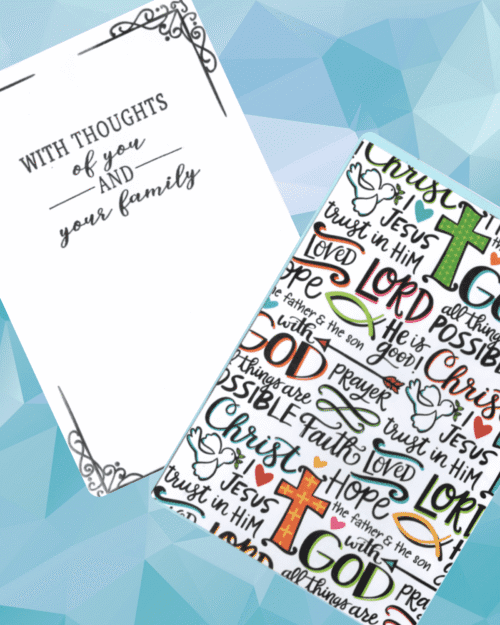 WITH THOUGHTS
of you
AND
your family
Christ
I
JESUS
trust in HIM
the
LOVED
LORD
GO
ope
all things
POSSIBLE
he father & the son
He is
good!
Chris
with
GOD
PRAYER
I
JESUS
ll things are
SSIBLE
Faith
LOVED
trust in HIM
Christ
Hope
LORD
I
JESUS
trust in HIM
the father & the son
with
LORD
GOD
all things are
PRAYER